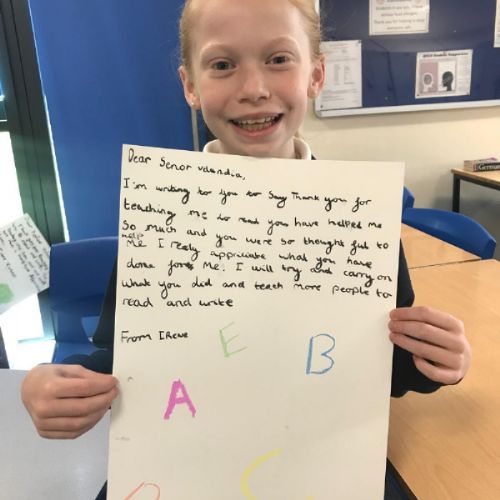 Dear Senor velandia,
I'm writing to you to say Thank you for
teaching me to read you have helped me
So much and you were so thoughtful to
help
me I really appriciate what you have
done for me. I will try and carry on
what you did and teach more people to
read and write
From IRene
E
B
A
German